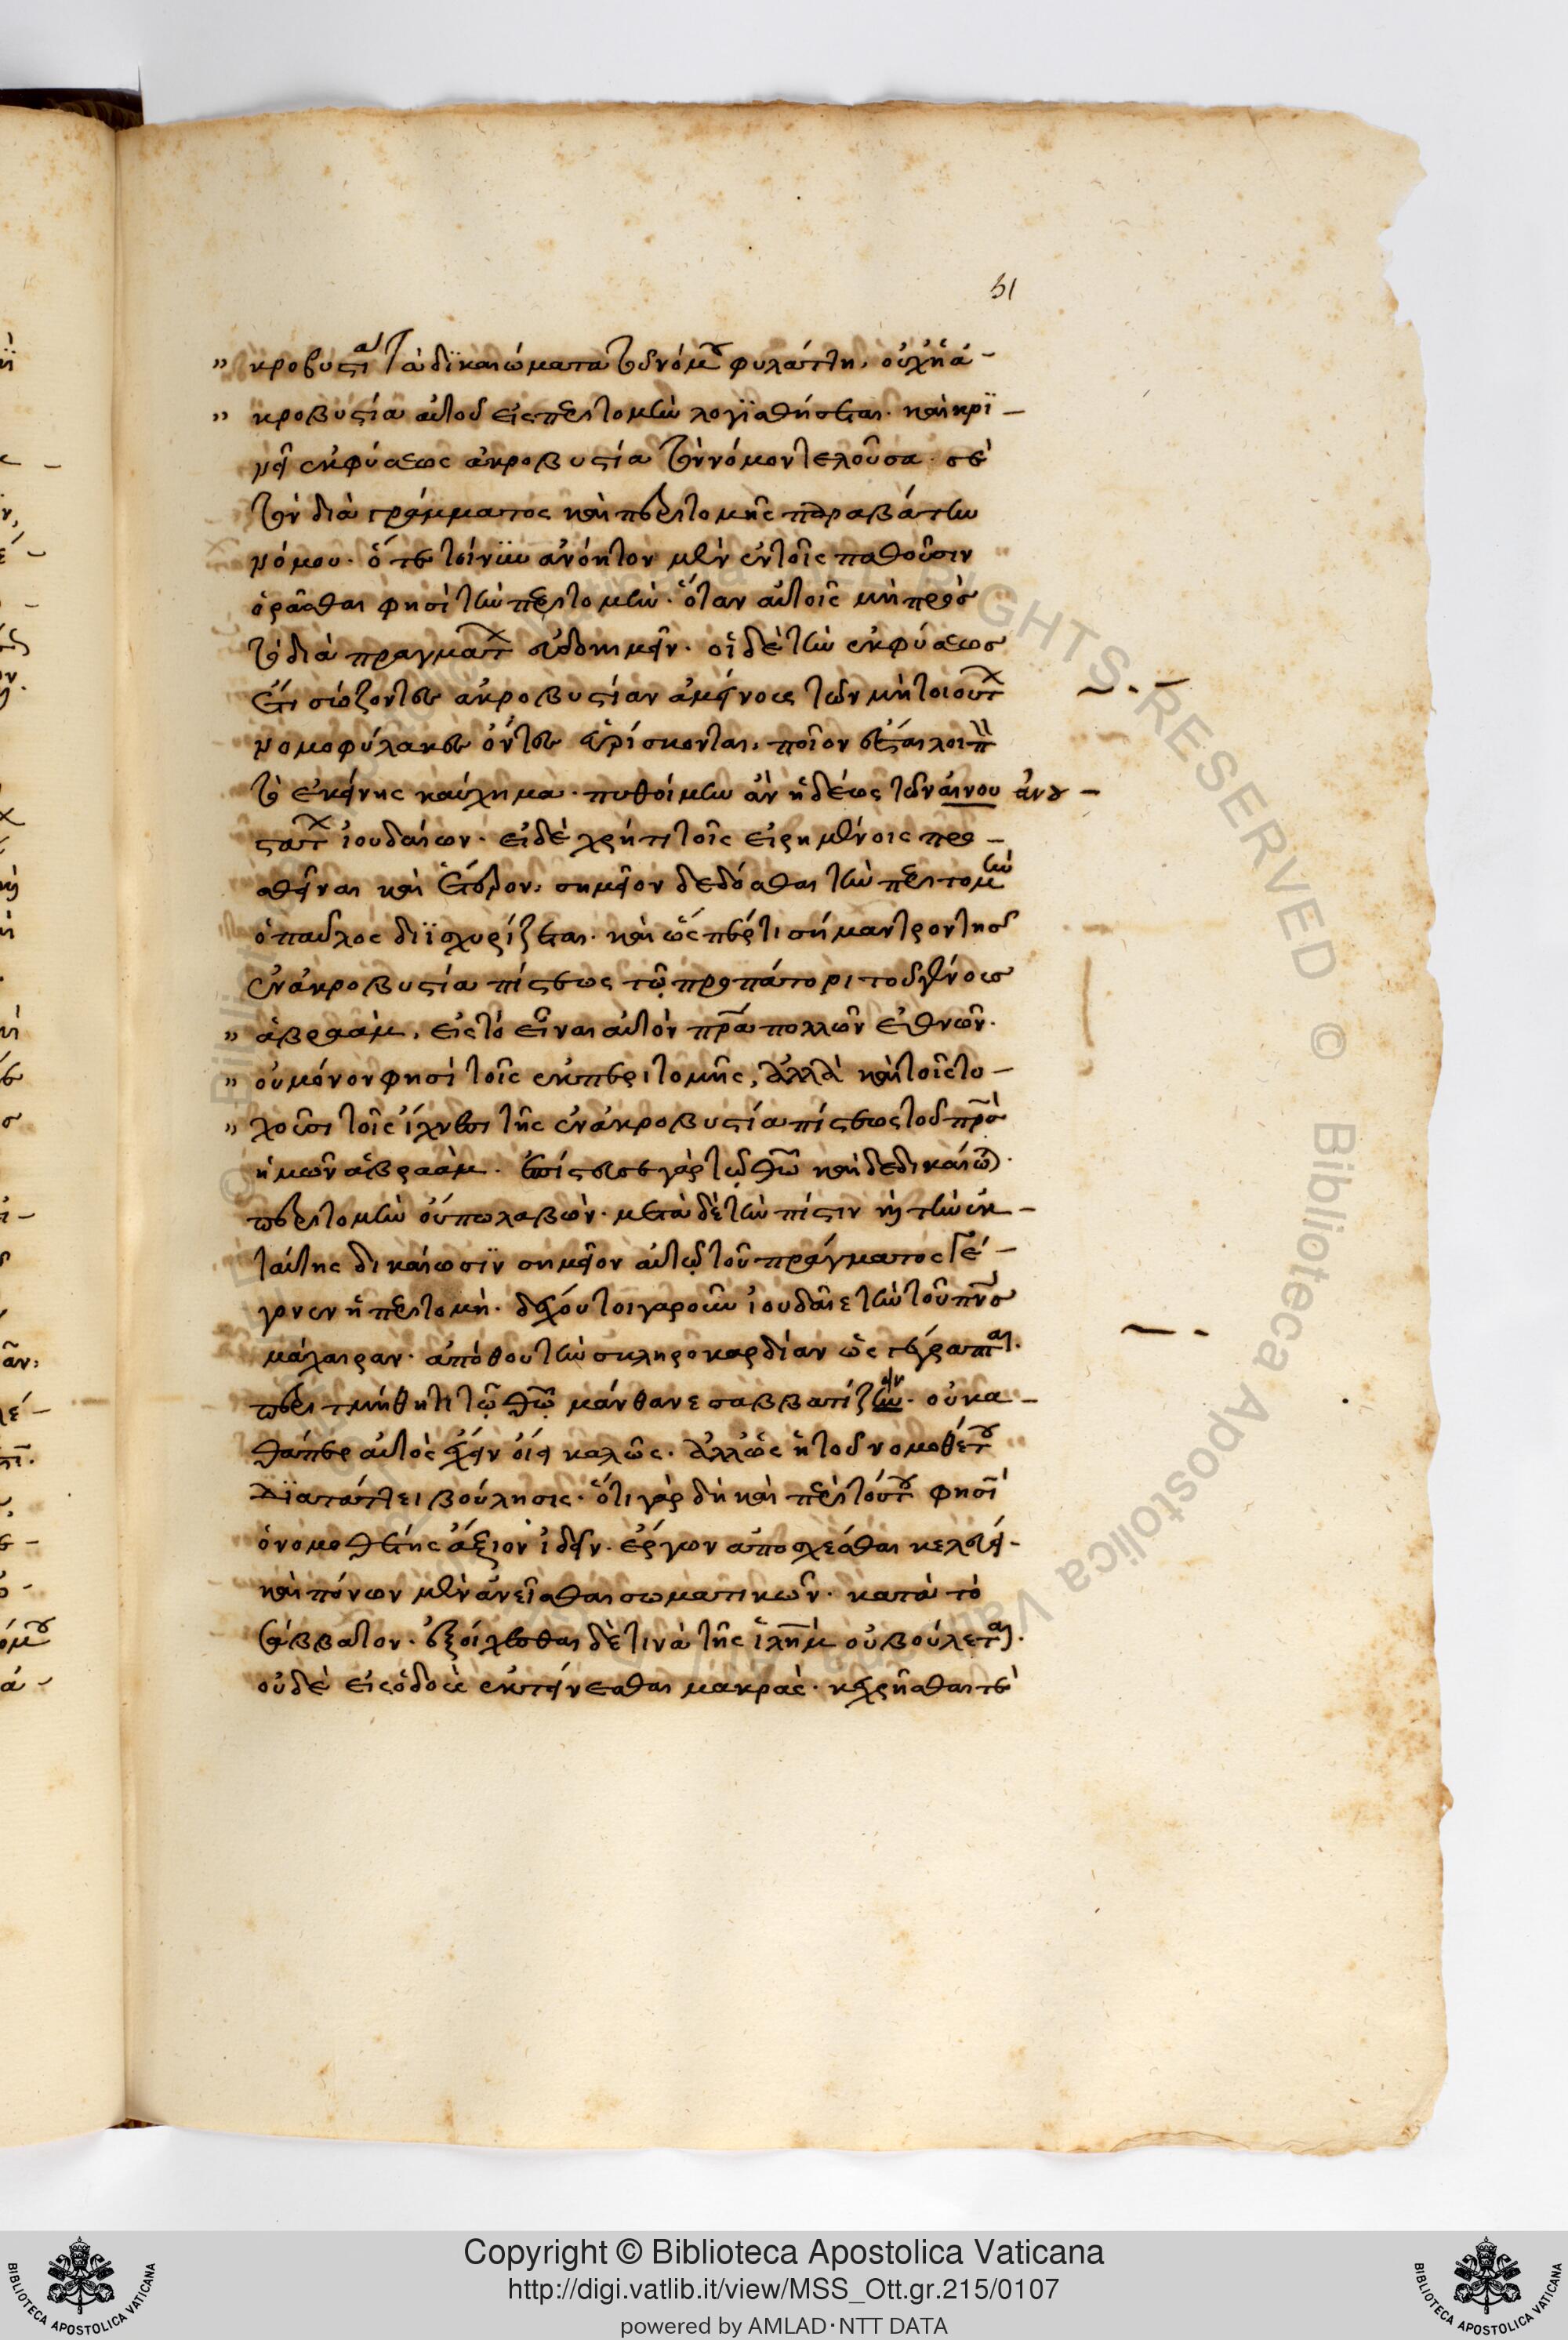 51
" κροβυστία τὰ δϊκαιώματα τοῦ νόμου φυλάττῃ, οὐχὶ ἡ ἀ-
" κροβυστία αὐτοῦ εἰς περιτομὴν λογϊσθήσεται. καὶ κρϊ-
νεῖ ἐκ φύσεως ἀκροβυστία τὸν νόμον τελοῦσα. σὲ
τὸν διὰ γράμματος καὶ περιτομῆς παραβάτην
νόμου. ὅτε τοίνυν ἀνόητον μὲν ἐν τοῖς παθοῦσιν
ὁρᾶσθαι φησὶ τὴν περιτομὴν. ὅταν αὐτοῖς μὴ πρὸς
τῶν διὰ πραγμάτων εὐδοκιμεῖν. οἱ δὲ τὴν ἐκ φύσεως
ἔτι σώζοντες ἀκροβυστίαν ἀμείνους τῶν μὴ τοιούτων
νομοφύλακες ὄντες εὑρίσκονται, ποῖον ἔσται λοιπὸν
τὸ ἐκείνης καύχημα. πυθοίμην ἂν ἡδέως τῶν αινου ἀνο-
στάτων ἰουδαίων. εἰ δὲ χρή τι τοῖς εἰρημένοις προ-
σθεῖναι καὶ ἕτερον, σημεῖον δεδόσθαι τὴν περιτομὴν
ὁ παῦλος διϊσχυρίζεται. καὶ ὥσπερ τι σήμαντρον τῆς
ἐν ἀκροβυστία πίστεως τῷ προπάτορι τοῦ γένους
" ἀβραὰμ, εἰς τὸ εἶναι αὐτὸν πρα πολλῶν ἐθνῶν.
" οὐ μόνον φησὶ τοῖς ἐκ περιτομῆς, ἀλλὰ καὶ τοῖς στο-
" χοῦσι τοῖς ἴχνεσι τῆς ἐν ἀκροβυστία πίστεως τοῦ πρσ
ἡμῶν ἀβραάμ. ἐπίστευσε γὰρ τῷ θῶ καὶ δεδικαίωται.
περιτομὴν οὔπω λαβών. μετὰ δὲ τὴν πίστιν καὶ τὴν ἐκ-
ταύτης δικαίωσϊν σημεῖον αὐτῷ τοῦ πράγματος γέ-
γονεν ἡ περιτομή. δέχου τοιγαροῦν ἰουδαῖε τὴν τοῦ πνσ
μάχαιραν. ἀπόθου τὴν σκληροκαρδίαν ὡς γέγραπται.
περιτμήθητι τῷ θῶ μάνθανε σαββατίζειν. οὐ κα-
θάπερ αὐτὸς ἔχειν οἴει καλῶς. ἀλλ' ὡς ἡ τοῦ νομοθέτου
διατάττει βούλησις. ὅτι γὰρ δὴ καὶ περὶ τούτου φησὶ
ὁ νομοθέτης ἄξιον ἰδεῖν. ἔργων ἀποσχέσθαι κελεύει.
καὶ πόνων μὲν ἀνεῖσθαι σωματικῶν. κατὰ τὸ
σάββατον. ἐξοίχεσθαι δέ τινα τῆς ἱλημ οὐ βούλεται.
οὐδὲ εἰς ὁδοὺς ἐκτείνεσθαι μακρὰς. κεχρῆσθαι τε
Copyright © Biblioteca Apostolica Vaticana
http://digi.vatlib.it/view/MSS_Ott.gr.215/0107
powered by AMLAD·NTT DATA